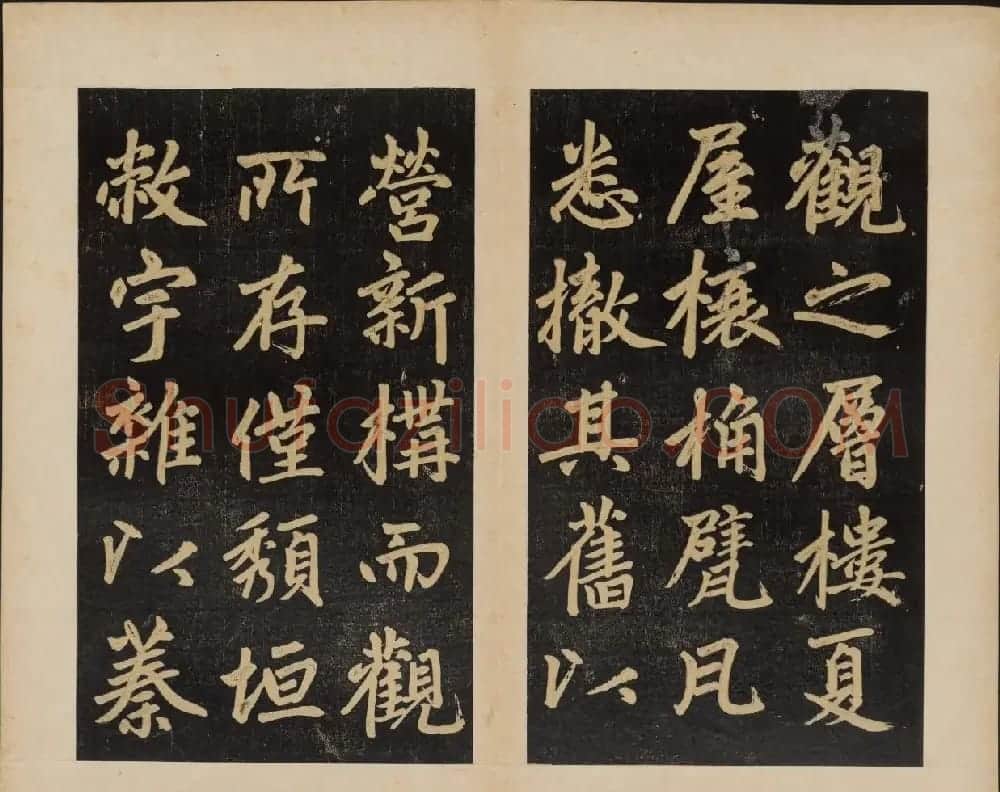 觀之層樓夏
屋榱桷甓凡
悉撤其舊以
營新構而觀
所存僅頹垣
敝宇雜以蓁
Shufaziliao.COM